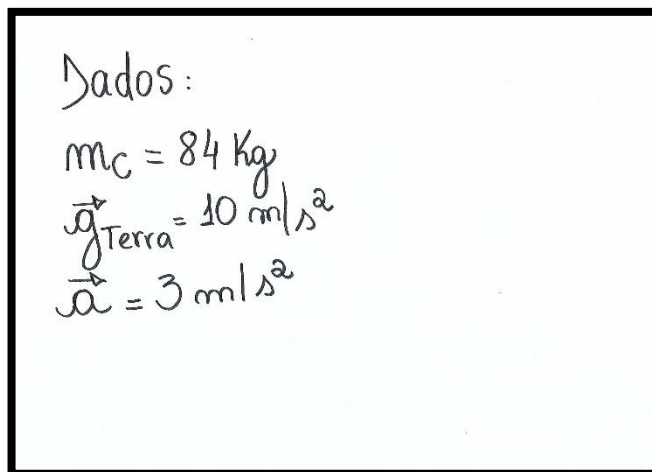 Dados:
mc = 84 Kg
g⃗Terra = 10 m/s²
a⃗ = 3 m/s²